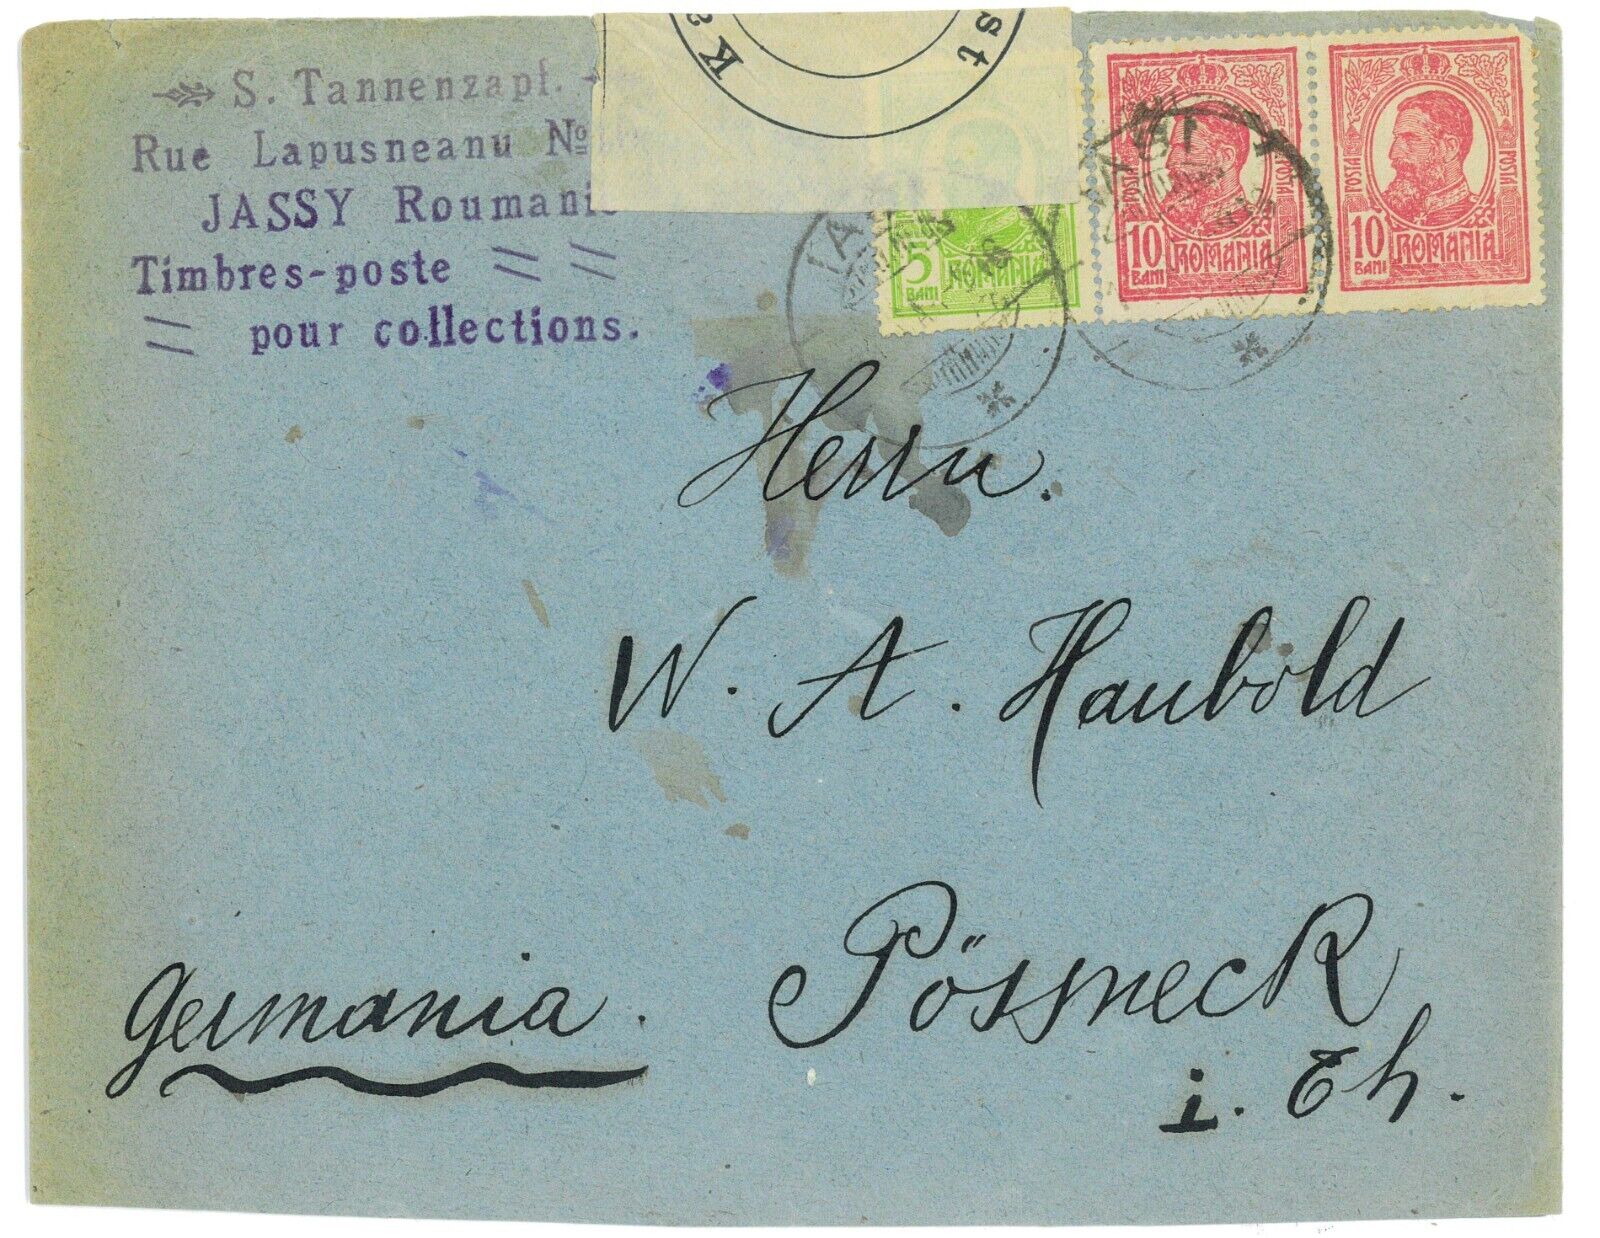 S. Tannenzapf.
Rue Lapusneanu No
JASSY Roumanie
Timbres-poste // //
// pour collections.
K
st
POSTA POSTA
10 BANI ROMANIA
POSTA POSTA
10 BANI ROMANIA
5 BANI ROMANIA
IASI
Herrn.
W. A. Haubold
Pössneck
i. Th.
Germania.